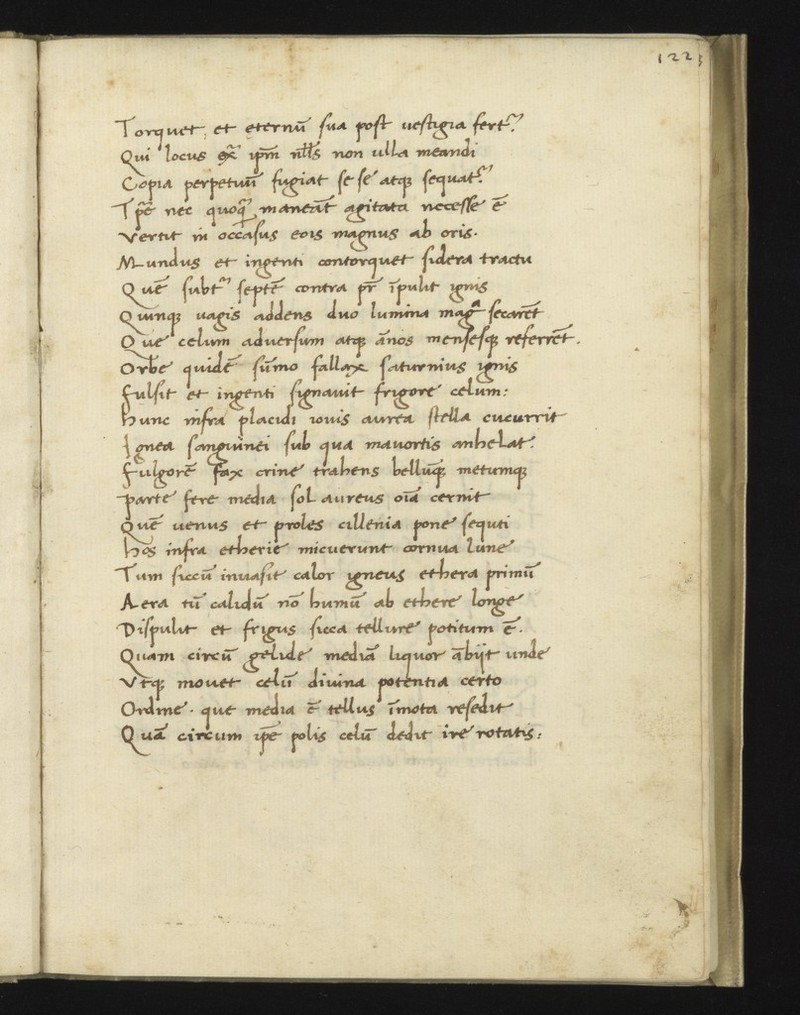 122
Torquet, et eternū sua post uestigia fertᷣ.
Qui locus ex̄ ip̄m nll̄s non ulla meandi
Copia perpetuū fugiat se se atq; sequatᷣ.
T p̄e nec quoq̄ maneāt agitata necesse ē
Vertit in occasus eois magnus ab oris.
Mundus et ingenti contorquet sidera tractu
Quē subtᷣ septē contra pr̄ īpulit ignis
Quinq; uagis addens duo lumina mag̃ secarēt
Que celum aduersum atq; ānos mensesq; referrēt.
Orbe quidē sūmo fallax saturnius ignis
Fulsit et ingenti signauit frigore celum:
Hunc infra placidi iouis aurea stella cucurrit
Ignea sanguinei sub qua mauortis anhelat.
Fulgorē fax crine trahens bellūq; metumq;
Parte fere media sol aureus oīa cernit
Quē uenus et proles cillenia pone sequti
Hos infra etherie micuerunt cornua lune
Tum siccū inuasit calor igneus ethera primū
Aera tū calidū nō humū ab ethere longe
Dispulit et frigus sicca tellure potitum ē.
Quam circū gelide mediā liquor ābijt unde
Vtq; mouet celū diuina potentia certo
Ordine. que media ē tellus īmota resedit
Quā circum ip̄e polis celū dedit ire rotatis: